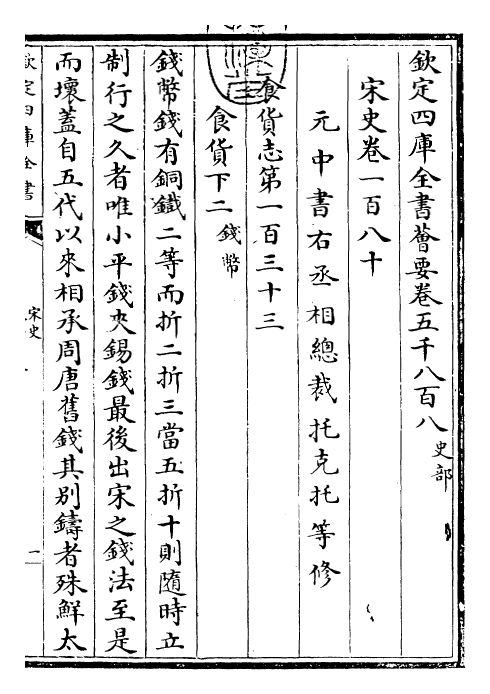 欽定四庫全書薈要卷五千八百八 史部
宋史卷一百八十
元中書右丞相總裁托克托等修
食貨志第一百三十三
食貨下二 錢幣
錢幣錢有銅鐵二等而折二折三當五折十則隨時立
制行之久者唯小平錢夾錫錢最後出宋之錢法至是
而壞蓋自五代以來相承周唐舊錢其别鑄者殊鮮太
欽定四庫全書
宋史
一